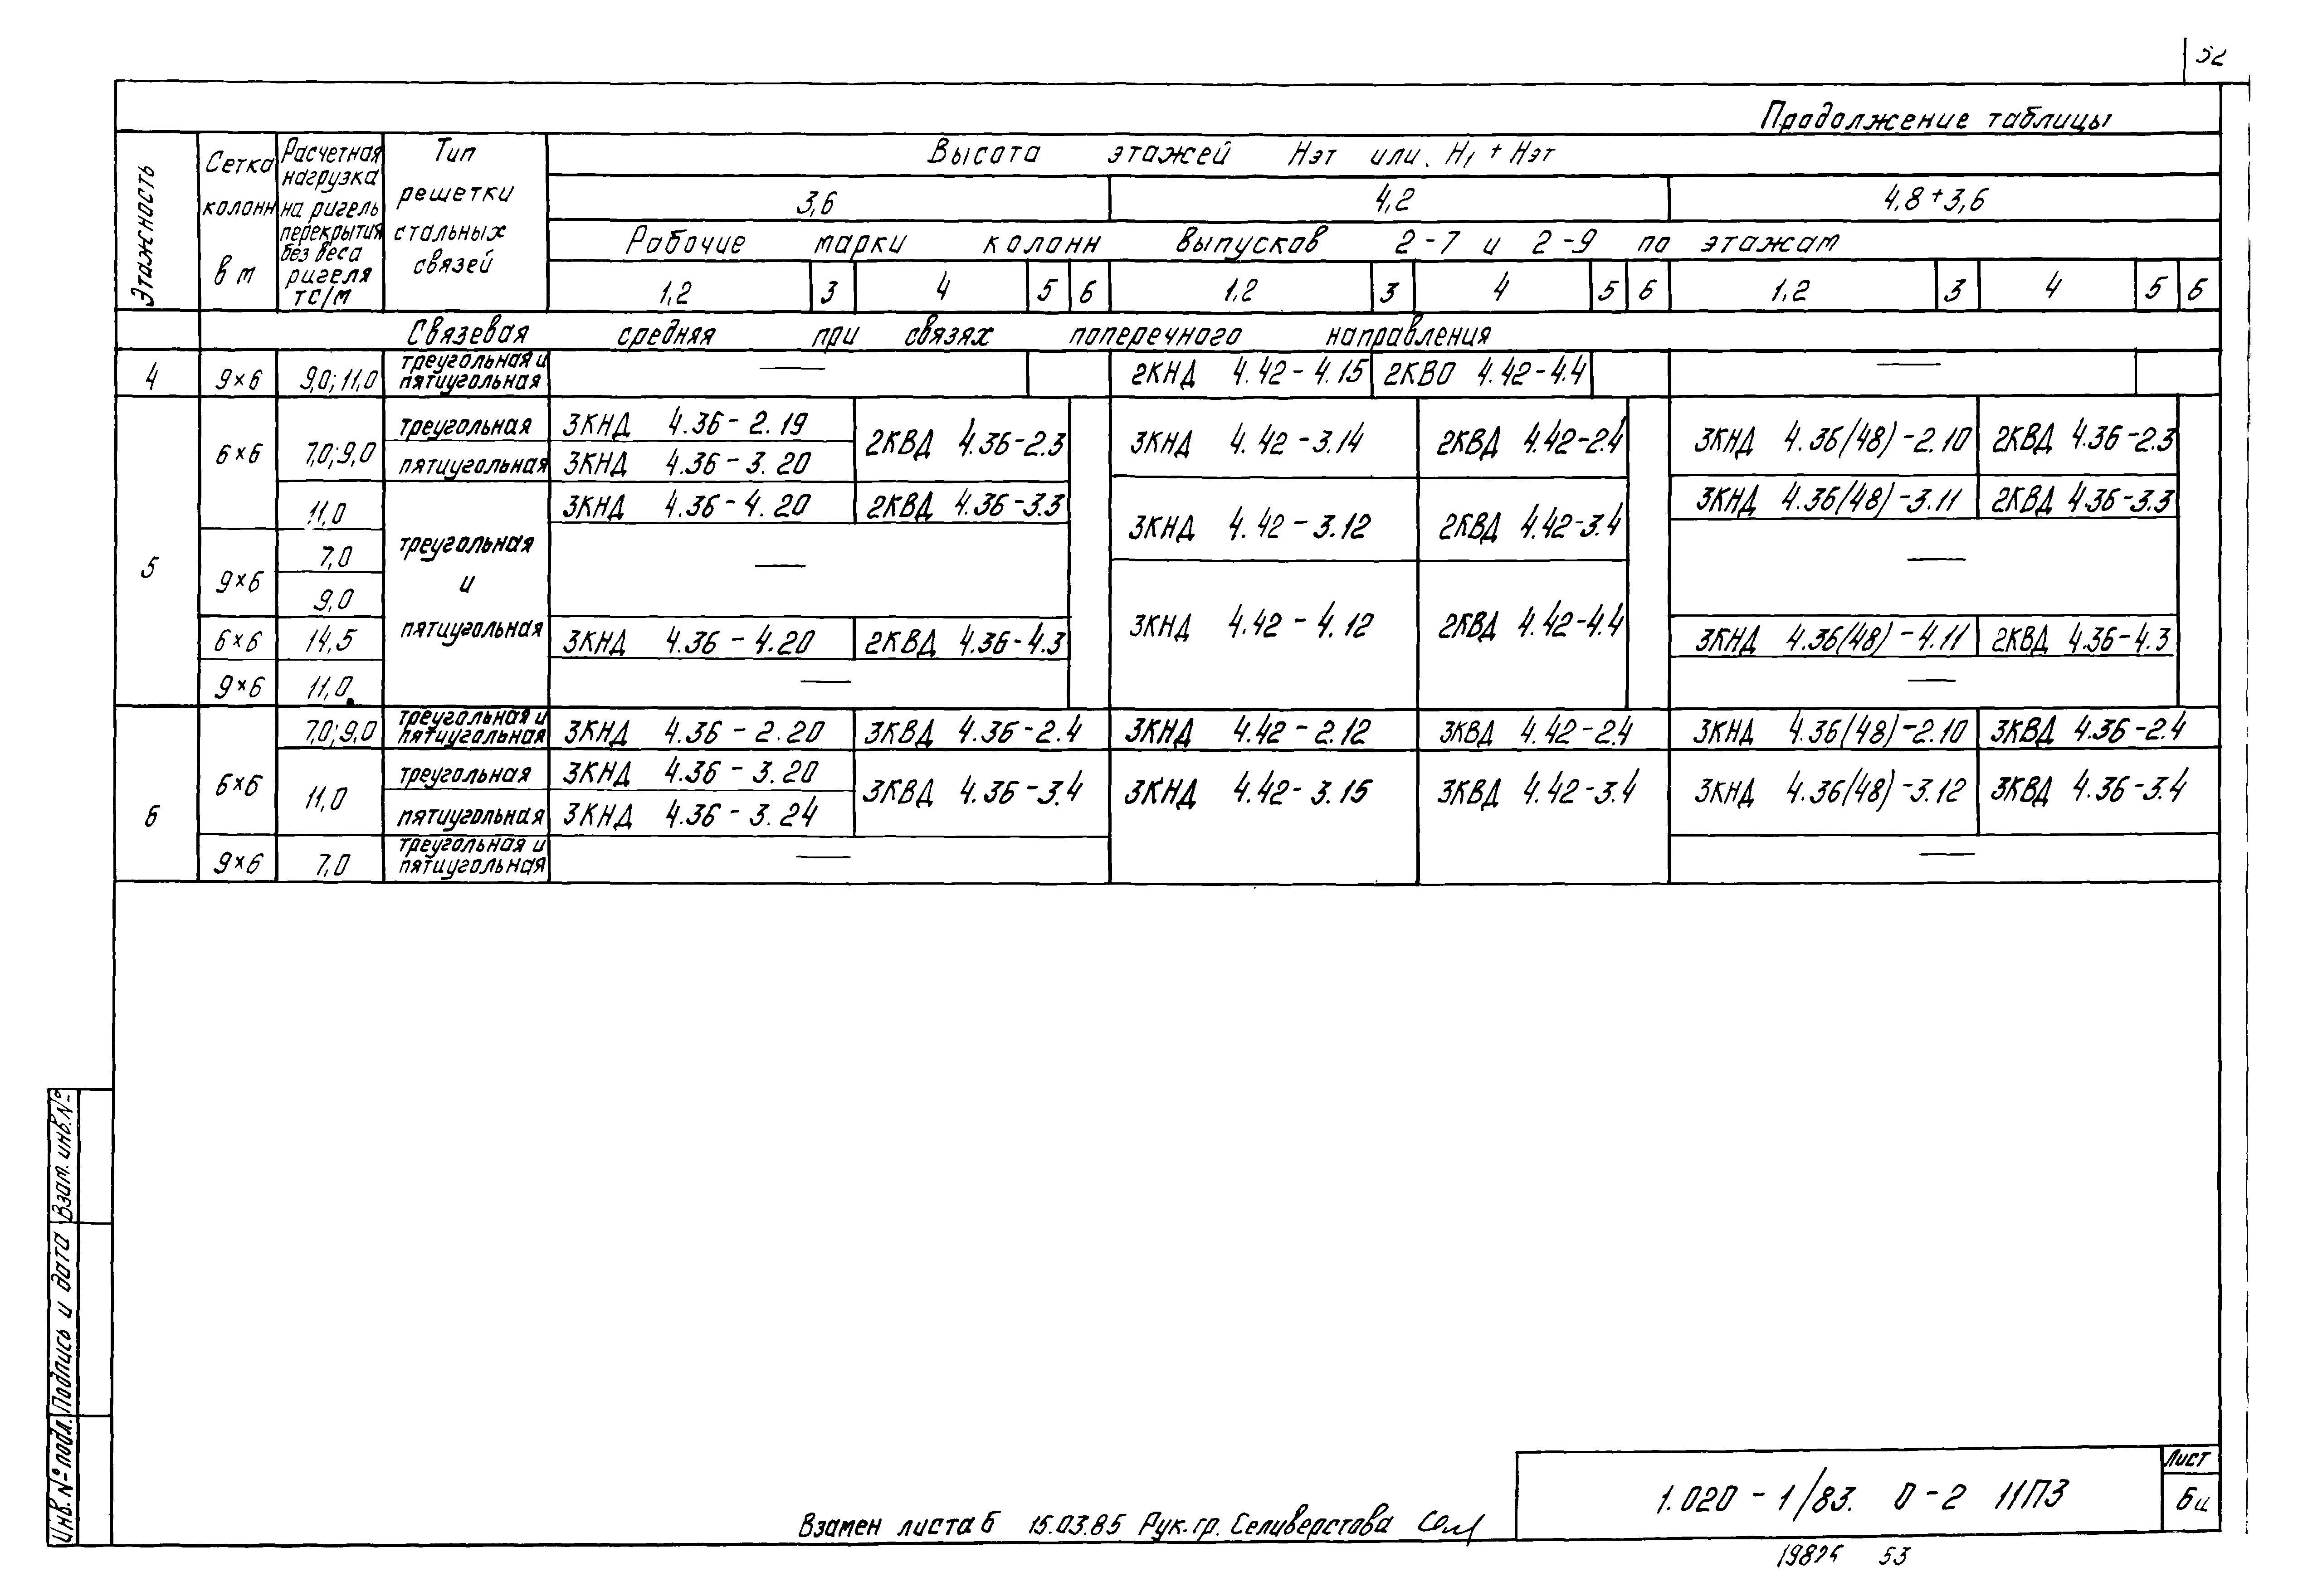 52
Продолжение таблицы
Этажность
Сетка колонн в м
Расчетная нагрузка на ригель перекрытия без веса ригеля тс/м
Тип решетки стальных связей
Высота этажей Нэт или. Н1 + Нэт
3,6 4,2 4,8+3,6
Рабочие марки колонн выпусков 2-7 и 2-9 по этажам
1,2 3 4 5 6 1,2 3 4 5 6 1,2 3 4 5 6
Связевая средняя при связях поперечного направления
4 9×6 9,0; 11,0 треугольная и пятиугольная — 2КНД 4.42-4.15 2КВО 4.42-4.4 —
5 6×6 7,0; 9,0 треугольная 3КНД 4.36-2.19 2КВД 4.36-2.3 3КНД 4.42-3.14 2КВД 4.42-2.4 3КНД 4.36(48)-2.10 2КВД 4.36-2.3
пятиугольная 3КНД 4.36-3.20
11,0 треугольная и пятиугольная 3КНД 4.36-4.20 2КВД 4.36-3.3 3КНД 4.42-3.12 2КВД 4.42-3.4 3КНД 4.36(48)-3.11 2КВД 4.36-3.3
9×6 7,0 — —
9,0 3КНД 4.42-4.12 2КВД 4.42-4.4
6×6 14,5 3КНД 4.36-4.20 2КВД 4.36-4.3 3КНД 4.36(48)-4.11 2КВД 4.36-4.3
9×6 11,0 — —
6 6×6 7,0; 9,0 треугольная и пятиугольная 3КНД 4.36-2.20 3КВД 4.36-2.4 3КНД 4.42-2.12 3КВД 4.42-2.4 3КНД 4.36(48)-2.10 3КВД 4.36-2.4
11,0 треугольная 3КНД 4.36-3.20 3КВД 4.36-3.4 3КНД 4.42-3.15 3КВД 4.42-3.4 3КНД 4.36(48)-3.12 3КВД 4.36-3.4
пятиугольная 3КНД 4.36-3.24
9×6 7,0 треугольная и пятиугольная — —
Инв. № подл. Подпись и дата Взам. инв. №
Взамен листа 6 15.03.85 Рук. гр. Селиверстова
1.020-1/83. 0-2 11ПЗ
Лист
6и
53